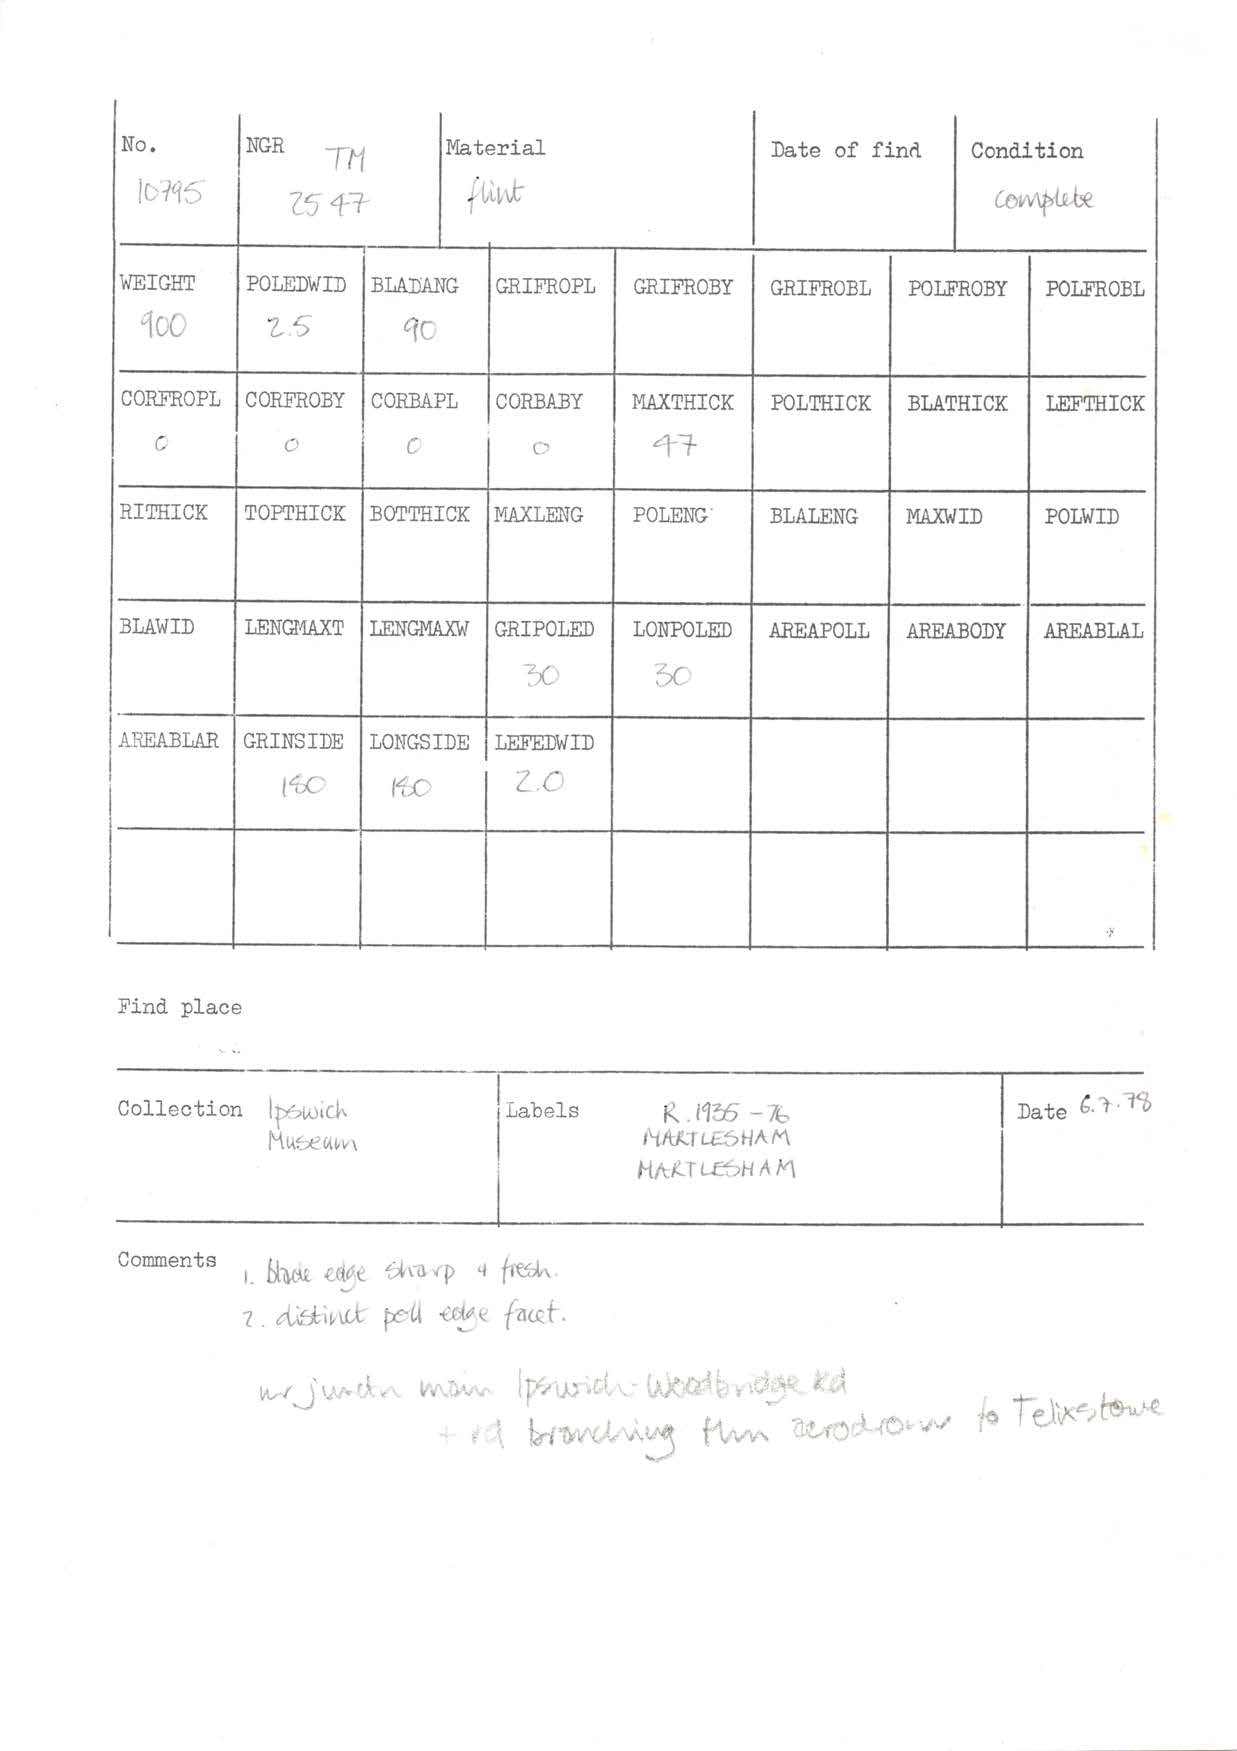 No. NGR TM Material Date of find Condition
10795 2547 flint complete
WEIGHT POLEDWID BLADANG GRIFROPL GRIFROBY GRIFROBL POLFROBY POLFROBL
900 2.5 90
CORFROPL CORFROBY CORBAPL CORBABY MAXTHICK POLTHICK BLATHICK LEFTHICK
0 0 0 0 47
RITHICK TOPTHICK BOTTHICK MAXLENG POLENG BLALENG MAXWID POLWID
BLAWID LENGMAXT LENGMAXW GRIPOLED LONPOLED AREAPOLL AREABODY AREABLAL
30 30
AREABLAR GRINSIDE LONGSIDE LEFEDWID
180 180 2.0
Find place
Collection Ipswich Labels R.1935-76 Date 6.7.78
Museum MARTLESHAM
MARTLESHAM
Comments 1. blade edge sharp & fresh.
2. distinct poll edge facet.
nr junctn main Ipswich-Woodbridge Rd
+ rd branching thru aerodrome to Felixstowe